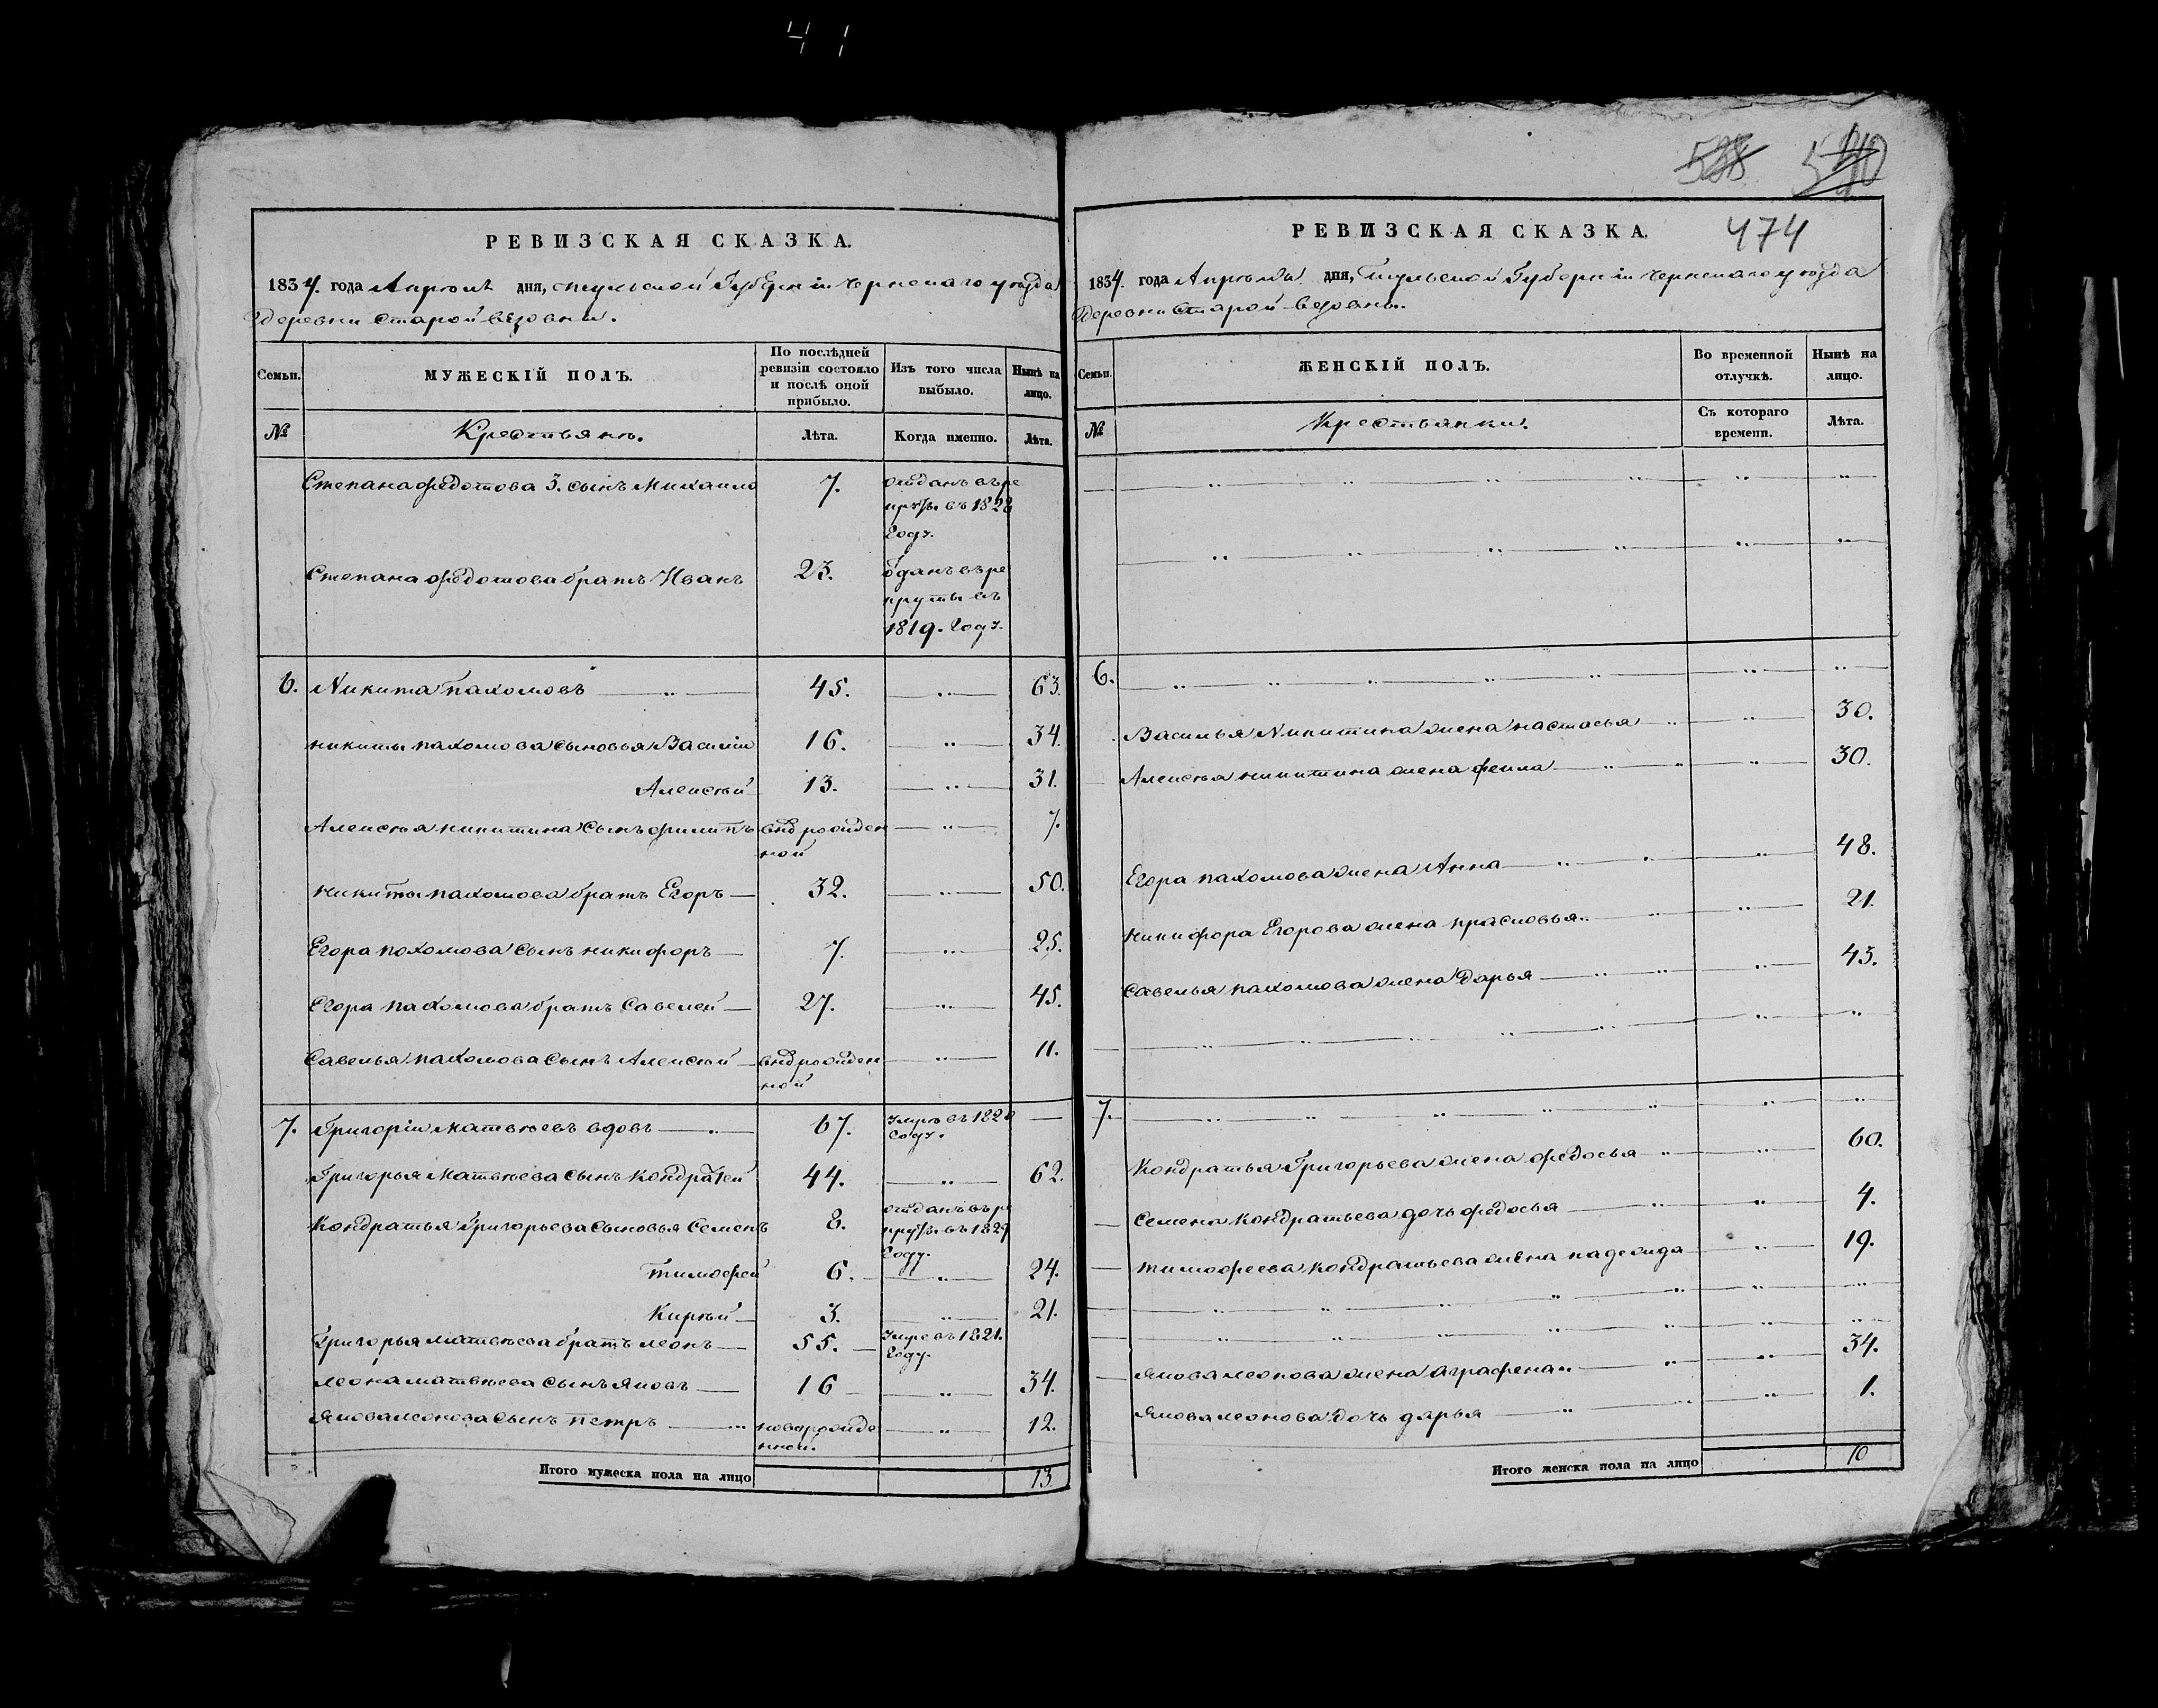 41
538 540
РЕВИЗСКАЯ СКАЗКА.
1834. года Апреля дня, Тульской Губерніи Чернскаго уезда
деревни Старой Вязовни.
Семьи. МУЖЕСКІЙ ПОЛЪ. По послѣдней ревизіи состояло и послѣ оной прибыло. Изъ того числа выбыло. Нынѣ на лицо.
№ Крестьянъ. Лѣта. Когда именно. Лѣта.
Степана федотова 3. сынъ Михаило 7. отданъ въ ре
круты въ 1828
году.
Степана федотова братъ Иванъ 23. отданъ въ ре
круты въ
1819. году.
6. Никита пахомовъ 45. 63.
никиты пахомова сыновья Василіи 16. 34.
Алексѣй 13. 31.
Алексѣя никитина сынъ филипъ новорожден 7.
ной
никиты пахомова братъ Егоръ 32. 50.
Егора пахомова сынъ никифоръ 7. 25.
Егора пахомова братъ Савелей 27. 45.
Савелья пахомова сынъ Алексѣй новорожден 11.
ной
7. Григоріи Матвѣевъ вдовъ 67. умре въ 1820
году.
Григорья Матвѣева сынъ Кондратей 44. 62.
Кондратья Григорьева сыновья Семенъ 8. отданъ въ ре
круты въ 1829
году.
Тимофей 6. 24.
Кирѣй 3. 21.
Григорья матвѣева братъ леонъ 55. умре въ 1821.
году.
леона матвѣева сынъ яковъ 16 34.
якова леонова сынъ петръ новорожде 12.
нной.
Итого мужеска пола на лицо 13.
РЕВИЗСКАЯ СКАЗКА. 474
1834. года Апреля дня, Тульской Губерніи Чернскаго уезда
деревни Старой Вязовни.
Семьи. ЖЕНСКІЙ ПОЛЪ. Во временной отлучкѣ. Нынѣ на лицо.
№ Крестьянки. Съ котораго времени. Лѣта.
6.
Василья Никитина жена настасья 30.
Алексѣя никитина жена фекла 30.
Егора пахомова жена Анна 48.
никифора Егорова жена прасковья 21.
Савелья пахомова жена Дарья 43.
7.
Кондратья Григорьева жена федосья 60.
Семена Кондратьева дочь федосья 4.
тимофеева Кондратьева жена надежда 19.
якова леонова жена аграфена 34.
якова леонова дочь дарья 1.
Итого женска пола на лицо 10